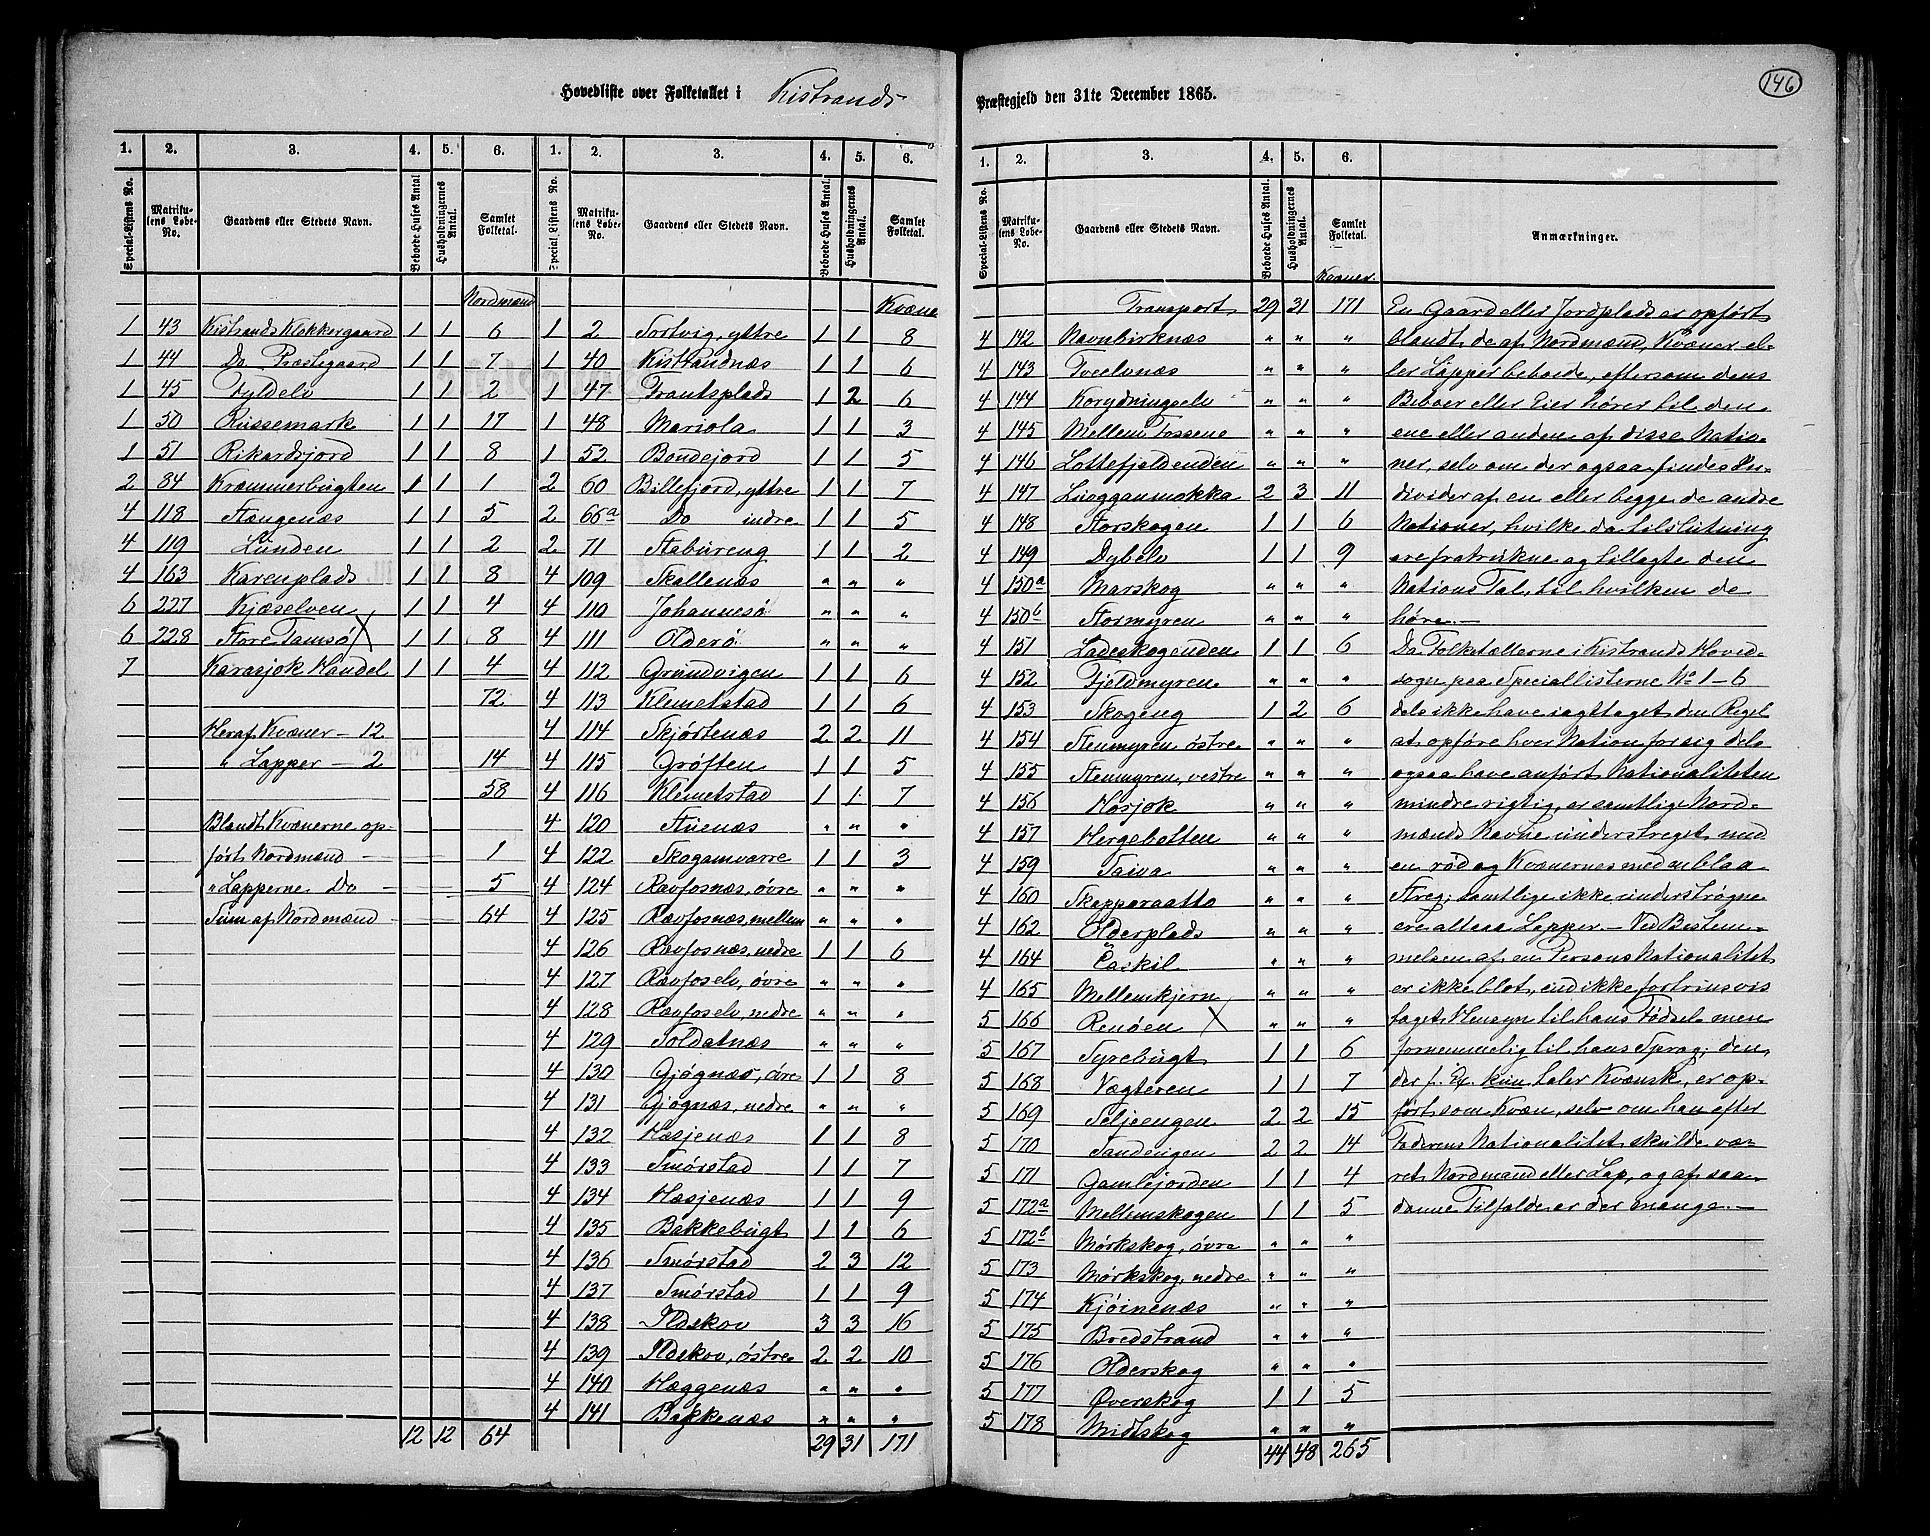 Hovedliste over Folketallet i Kistrands
Præstegjeld den 31te December 1865.
146
1. 2. 3. 4. 5. 6.
Special-Listens No. Matrikulens Løbe-No. Gaardens eller Stedets Navn. Beboede Huses Antal Husholdningernes Antal. Samlet Folketal.
Nordmænd
1 43 Kistrands Klokkergaard 1 1 6
1 44 Do Præstegaard 1 1 7
1 45 Fyldelv 1 1 2
1 50 Russemark 1 1 17
1 51 Rikardsjord 1 1 8
2 84 Kræmmerbugten 1 1 1
4 118 Stængenæs 1 1 5
4 119 Lunden 1 1 2
4 163 Karenplads 1 1 8
6 227 Kjæselven 1 1 4
6 228 Store Tamsø X 1 1 8
7 Karasjok Handel 1 1 4
72
Heraf Kvæner - 12
" Lapper - 2 14
58
Blandt Kvænerne op-
ført Nordmænd - 1
" Lapperne Do - 5
Sum af Nordmænd 64
12 12 64
1. 2. 3. 4. 5. 6.
Special-Listens No. Matrikulens Løbe-No. Gaardens eller Stedets Navn. Beboede Huses Antal. Husholdningernes Antal. Samlet Folketal.
Kvæner
1 2 Sortvig, yttre 1 1 8
1 40 Kistrandnæs 1 1 6
1 47 Frantsplads 1 2 6
1 48 Mariola 1 1 3
1 52 Bondejord 1 1 5
2 60 Billefjord, yttre 1 1 7
2 66a Do indre 1 1 5
2 71 Stabureng 1 1 2
4 109 Skallenæs " " "
4 110 Johannesø " " "
4 111 Olderø " " "
4 112 Grundvigen 1 1 6
4 113 Klemetstad 1 1 6
4 114 Skjørtenæs 2 2 11
4 115 Grøften 1 1 5
4 116 Klemetstad 1 1 7
4 120 Stuenæs " " "
4 122 Skoganvarre 1 1 3
4 124 Ravfosnæs, øvre " " "
4 125 Ravfosnæs, mellem " " "
4 126 Ravfosnæs, nedre 1 1 6
4 127 Ravfoselv, øvre " " "
4 128 Ravfoselv, nedre " " "
4 129 Soldatnæs " " "
4 130 Gjøgnæs, øvre 1 1 8
4 131 Gjøgnæs, nedre " " "
4 132 Hæsjenæs 1 1 8
4 133 Smørstad 1 1 7
4 134 Hæsjenæs 1 1 9
4 135 Bakkebugt 1 1 6
4 136 Smørstad 2 3 12
4 137 Smørstad 1 1 9
4 138 Ildskov 3 3 16
4 139 Ildskov, østre 2 2 10
4 140 Hæggenæs " " "
4 141 Bakkenæs " " "
29 31 171
1. 2. 3. 4. 5. 6.
Special-Listens No. Matrikulens Løbe-No. Gaardens eller Stedets Navn. Beboede Huses Antal. Husholdningernes Antal. Samlet Folketal. Anmærkninger.
Kvæner
Transport 29 31 171
4 142 Navnbirknæs " " "
4 143 Tveelvnæs " " "
4 144 Korydningselv " " "
4 145 Mellem Fossene " " "
4 146 Lottefjeldenden " " "
4 147 Luogganmokka 2 3 11
4 148 Storskogen 1 1 6
4 149 Dybelv 1 1 9
4 150a Marskog " " "
4 150b Stormyren " " "
4 151 Ladeskogenden 1 1 6
4 152 Fjeldmyren " " "
4 153 Skogeng 1 2 6
4 154 Stenmyren, østre " " "
4 155 Stenmyren, vestre " " "
4 156 Hosjok " " "
4 157 Hergebetten " " "
4 159 Saiva " " "
4 160 Skæpparaatto " " "
4 162 Olderplads " " "
4 164 Caskil " " "
4 165 Mellemkjern " " "
5 166 Renøen X " " "
5 167 Tyrebugt 1 1 6
5 168 Vægteren 1 1 7
5 169 Seljeengen 2 2 15
5 170 Sandengen 2 2 14
5 171 Gamlejorden 1 1 4
5 172a Mellemskogen 1 1 5
5 172b Mørkskog, øvre " " "
5 173 Mørkskog, nedre " " "
5 174 Kjøinenæs " " "
5 175 Bredstrand " " "
5 176 Olderskog " " "
5 177 Øverskog 1 1 5
5 178 Midtskog " " "
44 48 265
En Gaard eller Jordplads er opført
blandt de af Nordmænd, Kvæner el-
ler Lapper beboede, eftersom dens
Beboer eller Eier hører til den
ene eller anden af disse Natio-
ner, selv om der ogsaa findes In-
divider af en eller begge de andre
Nationer, hvilke da tilslutning
ere fratrukne og tillagte den
Nations Tal, til hvilken de
høre. -
Da Folketællerne i Kistrands Hoved-
sogn paa Speciallisterne No 1-6
dels ikke have iagttaget den Regel
at opføre hver Nation for sig, dels
ogsaa have anført Nationaliteten
mindre rigtig, er samtlige Nord-
mænds Navne understreget med
en rød og Kvænernes med en blaa
Streg; samtlige ikke understrøgne
ere altsaa Lapper. - Ved Bestem-
melsen af en Persons Nationalitet
er ikke blot, end ikke fortrinsvis
taget Hensyn til hans Fødsel men
fornemmelig til hans Sprog; den
der f. Ex. kun taler Kvænsk, er op-
ført som Kvæn, selv om han efter
Faderens Nationalitet skulde væ-
ret Nordmand eller Lap, og af saa-
danne Tilfælde er der mange. -